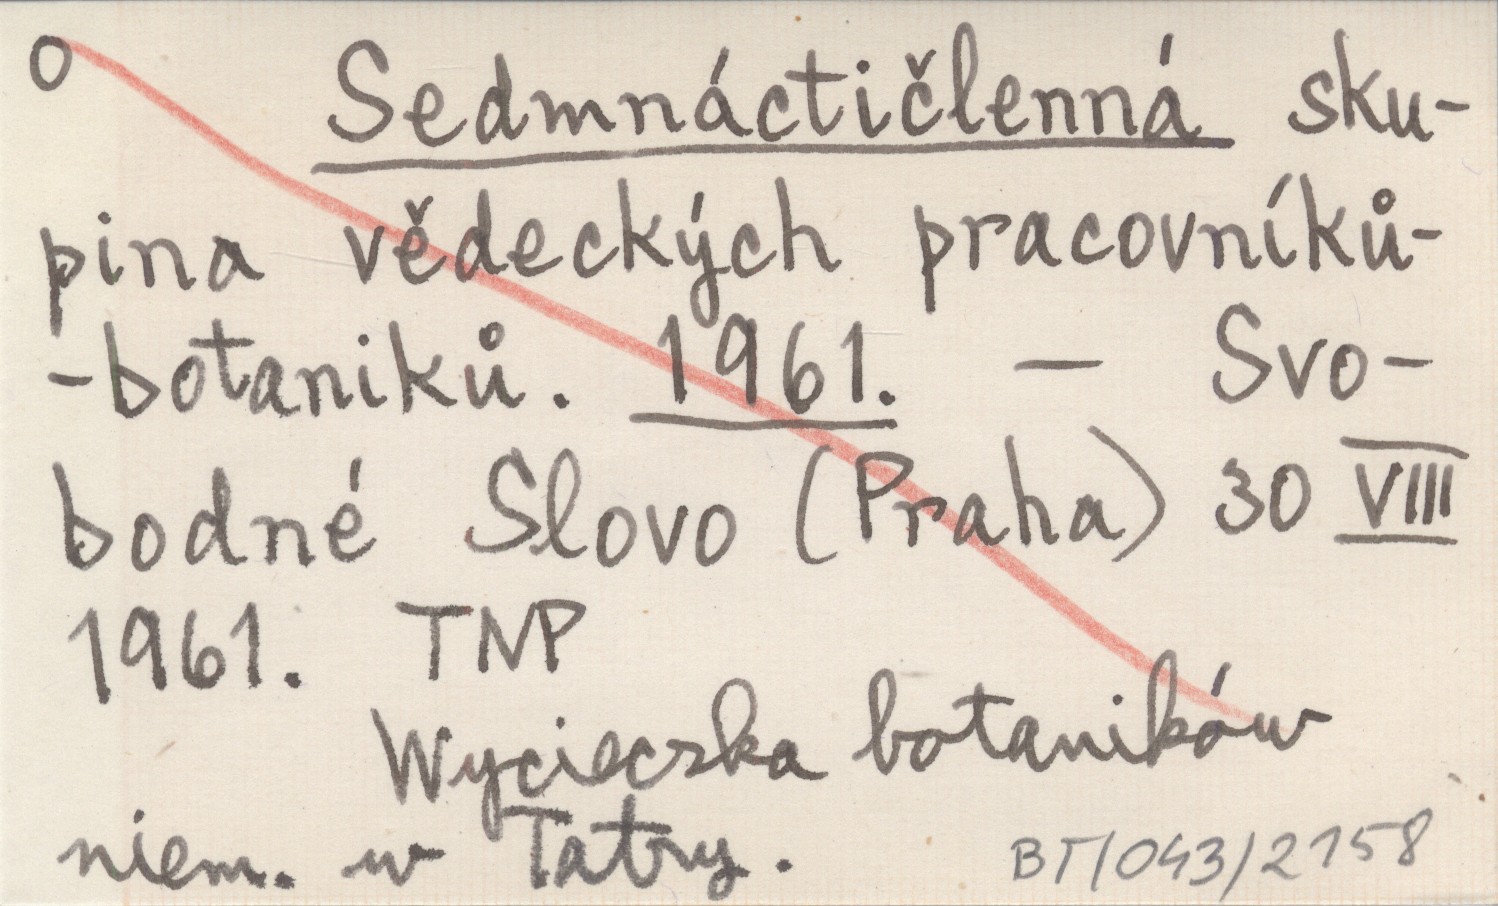 O Sedmnáctičlenná sku-
pina vědeckých pracovníků-
-botaniků. 1961. — Svo-
bodné Slovo (Praha) 30 VIII
1961. TNP
Wycieczka botaników
niem. w Tatry.
BT/043/2158